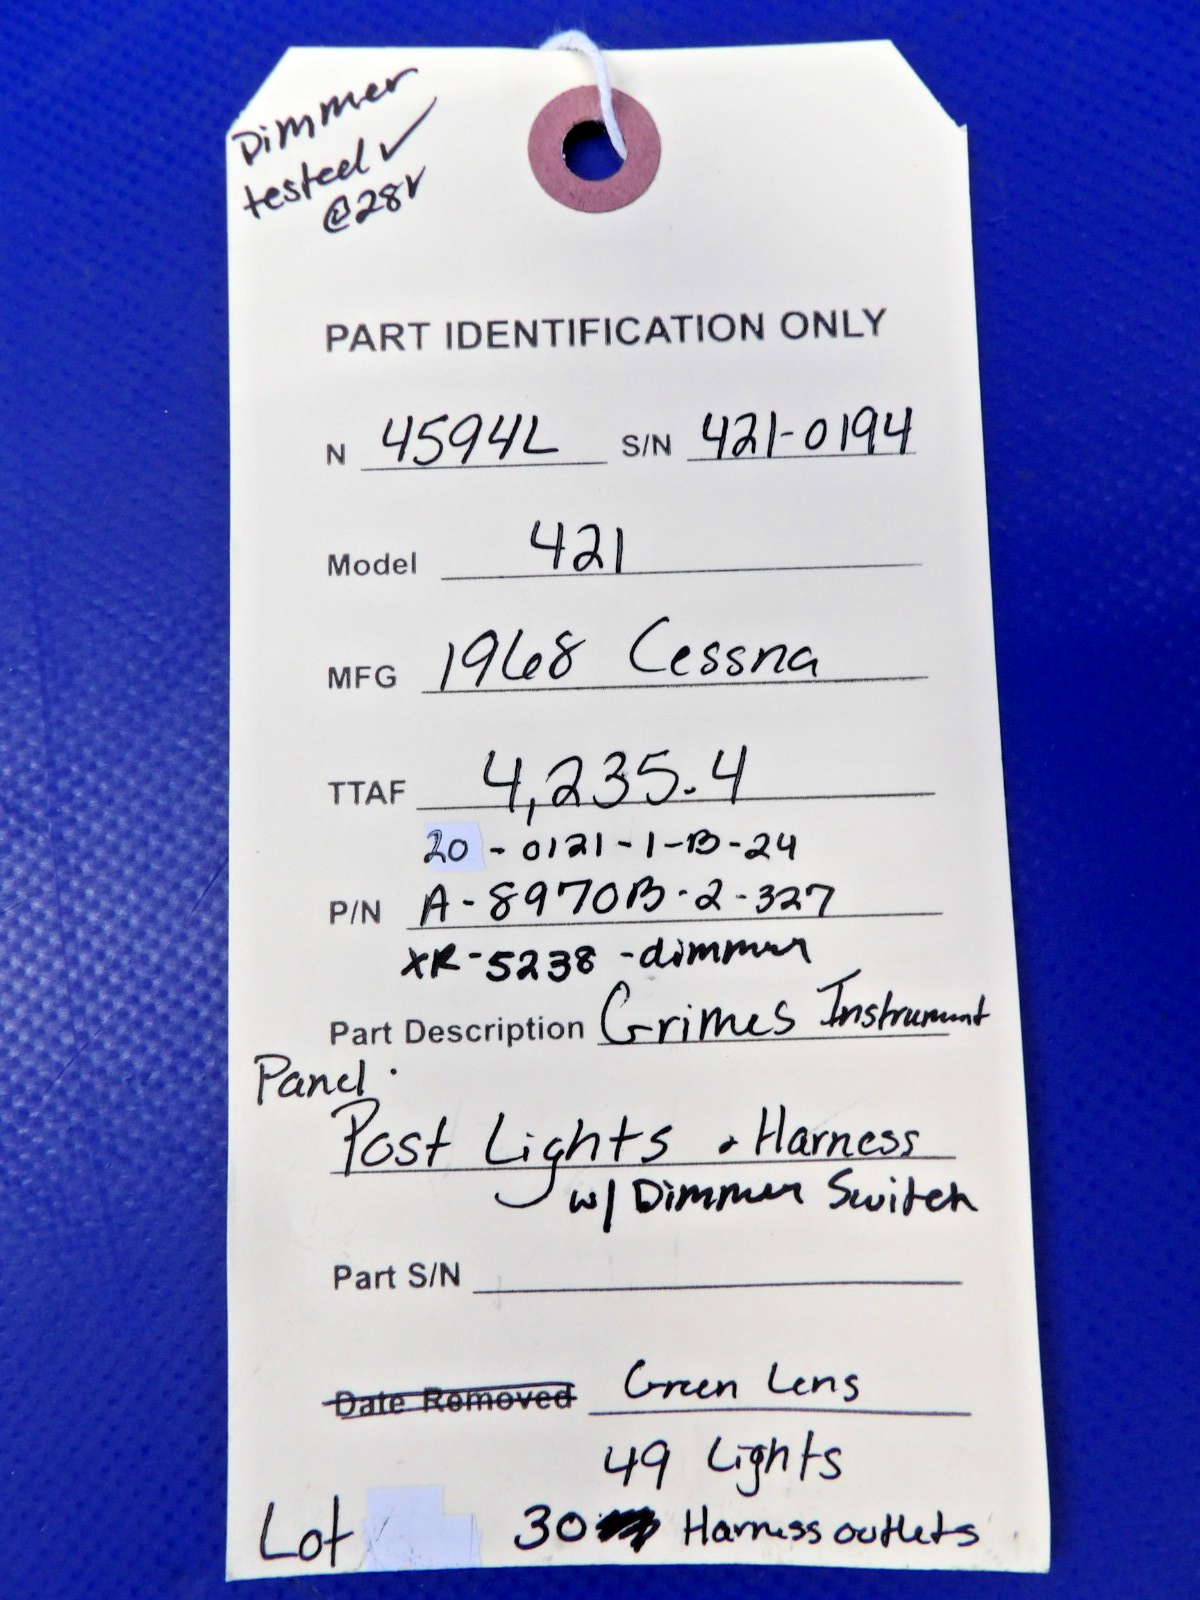 Dimmer
tested ✓
@28V
PART IDENTIFICATION ONLY
N 4594L S/N 421-0194
Model 421
MFG 1968 Cessna
TTAF 4,235.4
20-0121-1-B-24
P/N A-8970B-2-327
XR-5238-dimmer
Part Description Grimes Instrument
Panel
Post Lights + Harness
w/ Dimmer Switch
Part S/N
Date Removed Green Lens
49 Lights
Lot 30 Harness outlets